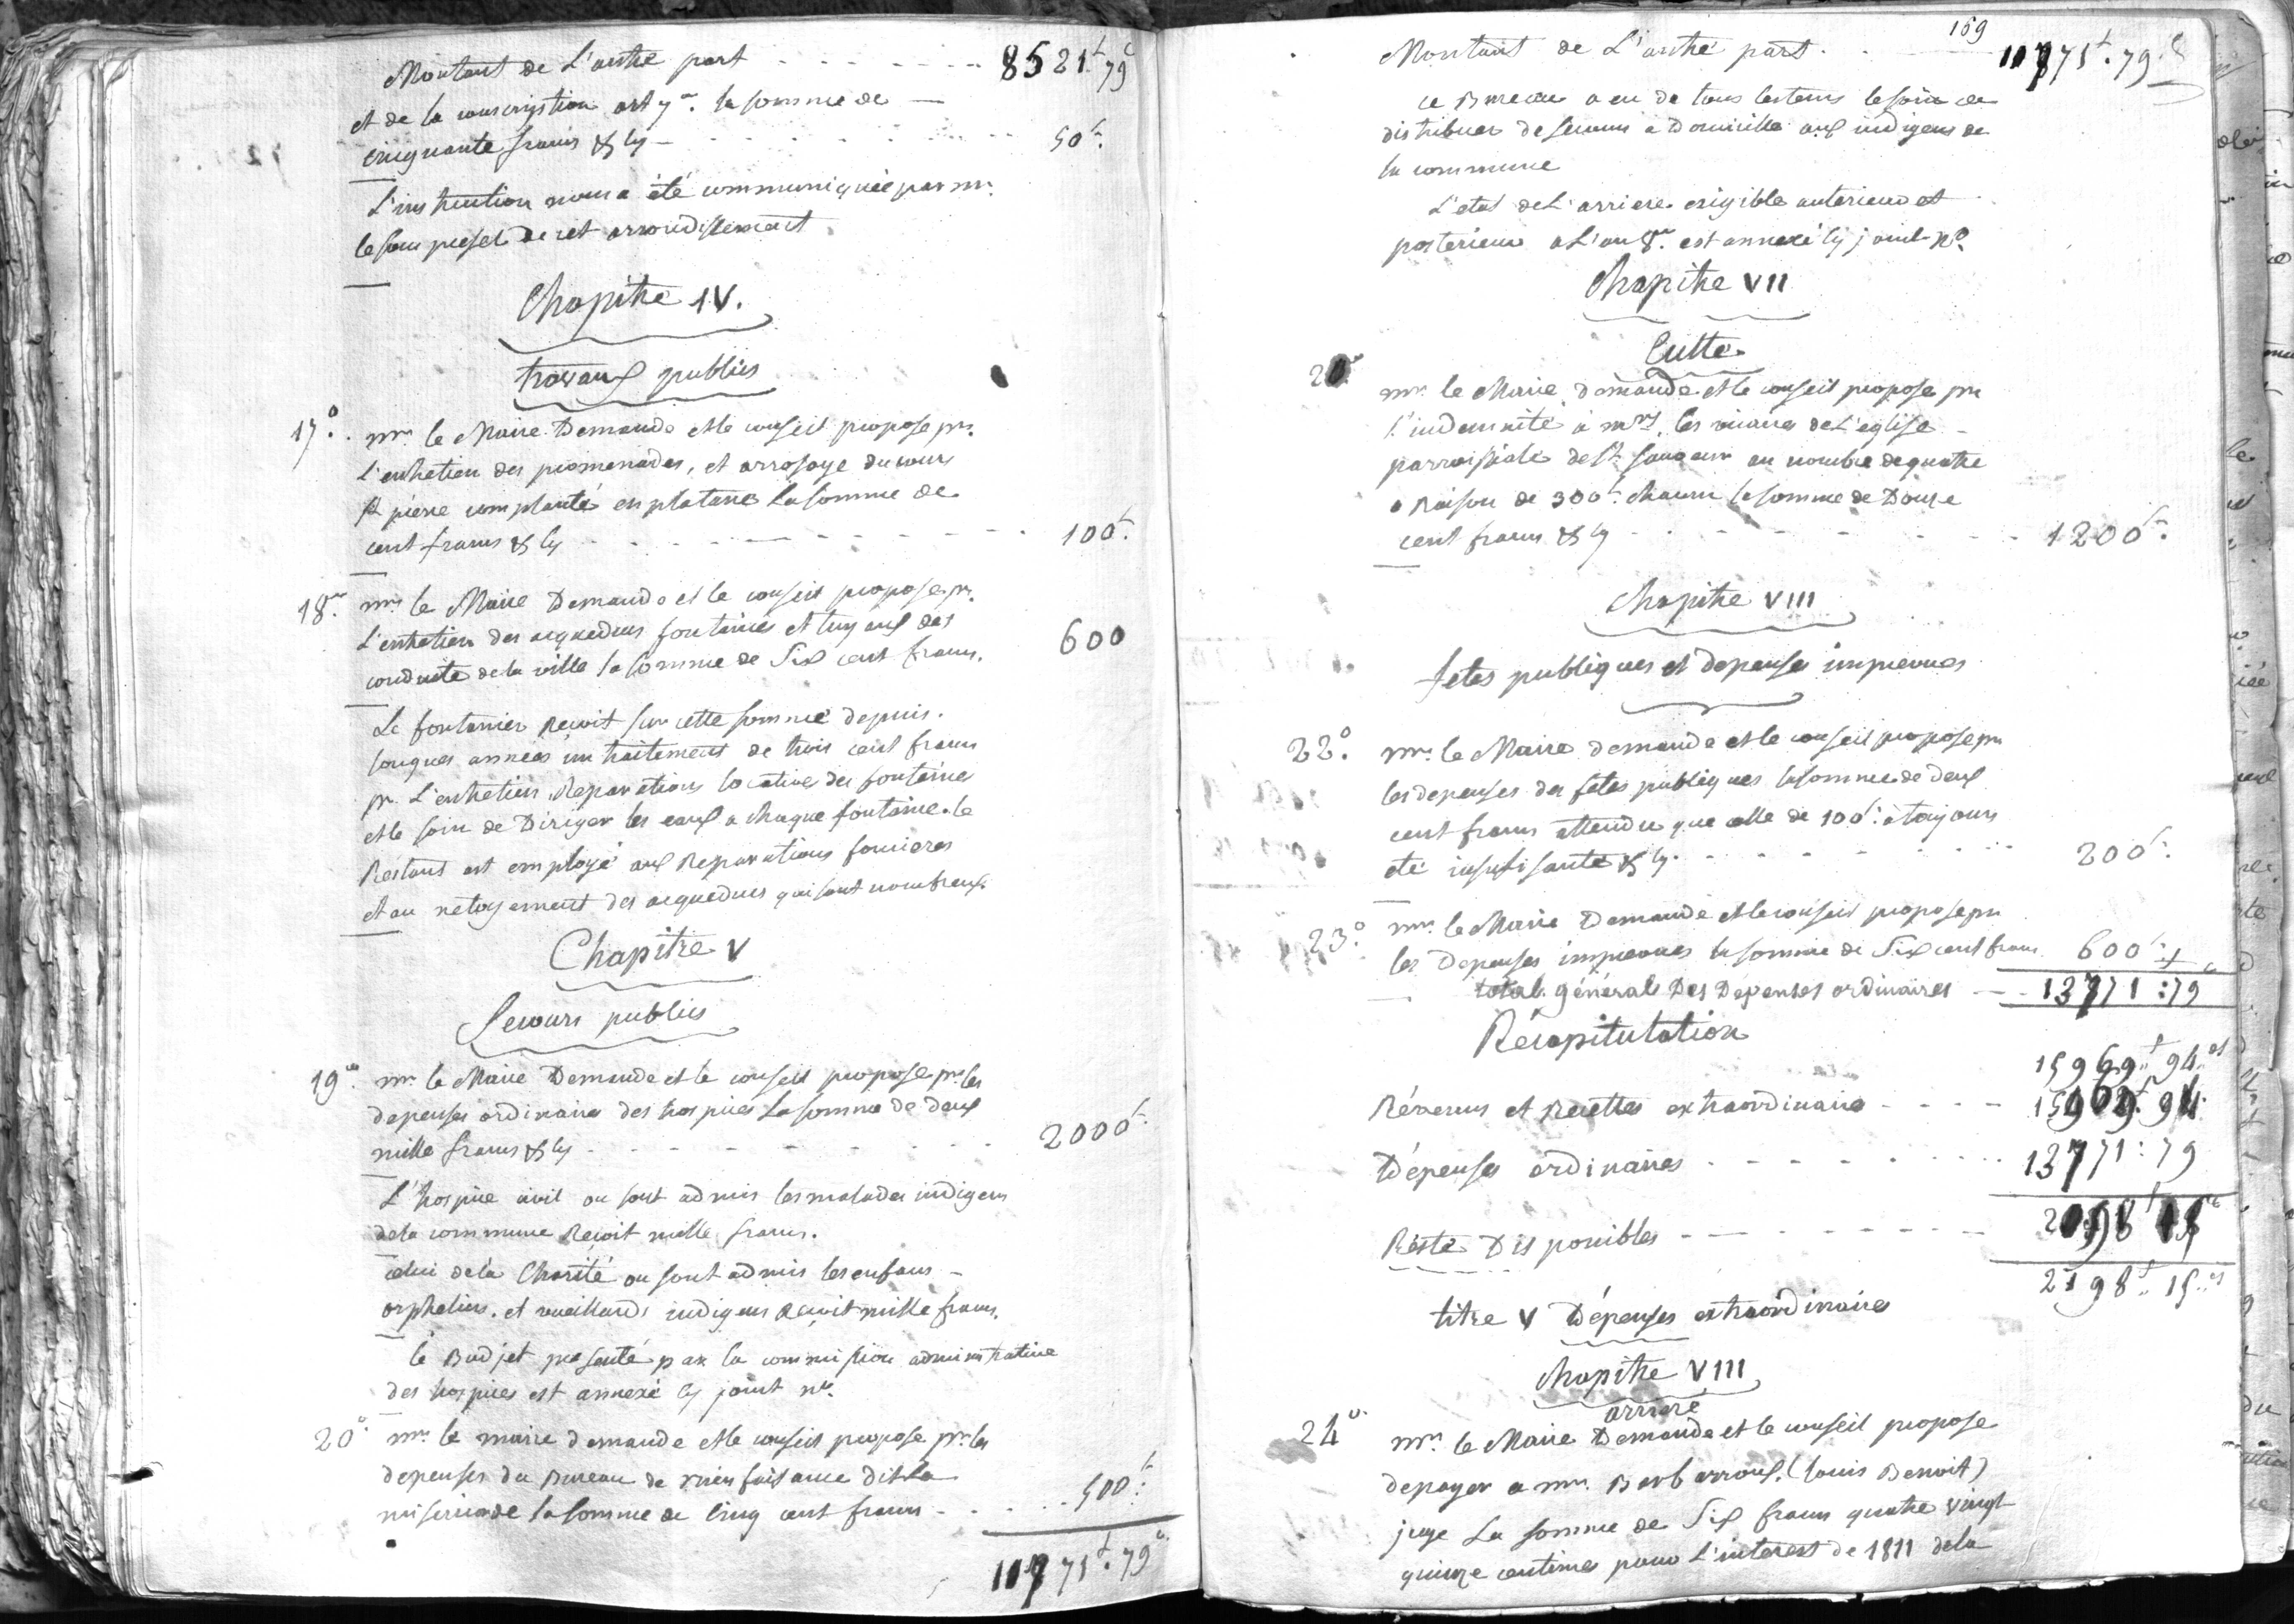 Montant de L'autre part - - - - - - - 8521ᶠ 79ᶜ
et de la conscription art 7ᵉ. la somme de —
cinquante francs &cy - - - - - - - 50ᶠ.
L'instruction nous a été communiquée par mr.
le sous prefet de cet arrondissement
Chapitre IV.
travaux publics
17°. mr. le Maire Demande et le conseil propose pr.
L'entretien des promenades, et arrosage du cours
St piérre complanté en platane La somme de
cent francs &cy - - - - - - - 100ᶠ.
18ᵉ. mr. le Maire Demande et le conseil propose pr.
L'entretien des acqueducs fontaines et tuyaux des
conduite de la ville la somme de Six cent francs. 600
Le fontainier Reçoit sur cette somme depuis
longues années un traitement de trois cent francs
pr. L'entretien, Reparations locative des fontaine
et le soin de Diriger les eaux a chaque fontaine. le
Restant est employé aux Reparations foncieres
et au netoyement des acqueducs qui sont nombreux
Chapitre V
Secours publics
19ᵉ. mr. le Maire Demande et le conseil propose pr. les
depenses ordinaires des hospices La somme de deux
mille francs &cy - - - - - - - 2000ᶠ.
L'hospice civil ou sont admis les malades indigens
de la commune Reçoit mille francs.
celui de la Charité ou sont admis les enfans -
orphelins. et vieillards indigens Reçoit mille francs.
le Budjet presenté par la commission administrative
des hospices est annexé cy joint no.
20° mr. le maire demande et le conseil propose pr. les
depenses du Bureau de Bienfaisance dit la
misericorde la somme de Cinq cent francs - - - 500ᶠ.
11771ᶠ. 79ᶜ
169
Montant de L'autre part. - - 11771ᶠ. 79ᶜ
ce Bureau a eu de tous les tems le soin de
distribuer de secours a Domicille aux indigens de
la commune
L'etat de L'arriere exigible anterieur et
posterieur a L'an 8ᵉ. est annexé cy joint No.
Chapitre VII
Culte
20 mr. le Maire demande et le conseil propose pr
l'indemnité à mrs. les vicaires de L'eglise -
parroissiale de St. Sauveur au nombre de quatre
a Raison de 300ᶠ. chacun la somme de Douze
cent francs &cy - - - - - - - 1200ᶠ.
Chapitre VIII
fetes publiques et depenses imprevues
22°. mr. le Maire demande et le conseil propose pr
les depenses des fetes publiques la somme de deux
cent francs attendu que celle de 100ᶠ. a toujours
été insufisante &cy. - - - - - - - 200ᶠ.
23°. mr. le Maire Demande et le conseil propose pr
les Depenses imprevues la somme de Six cent francs 600ᶠ.
total général Des Dépenses ordinaires - - 13771 : 79
Récapitulation
15969ᶠ 94ᶜˢ
Révenus et Recettes extraordinaire - - - - 15969ᶠ. 94
Dépenses ordinaires - - - - - - - 13771 : 79
Reste Disponibles - - - - - - -
2198ᶠ. 15ᶜˢ
titre V Dépenses extraordinaires
Chapitre VIII
arriéré
24° mr. le Maire Demande et le conseil propose
de payer a mr. Barbarroux (Louis Benoit)
juge La somme de Six francs quatre vingt
quinze centimes pour L'interest de 1811 de la